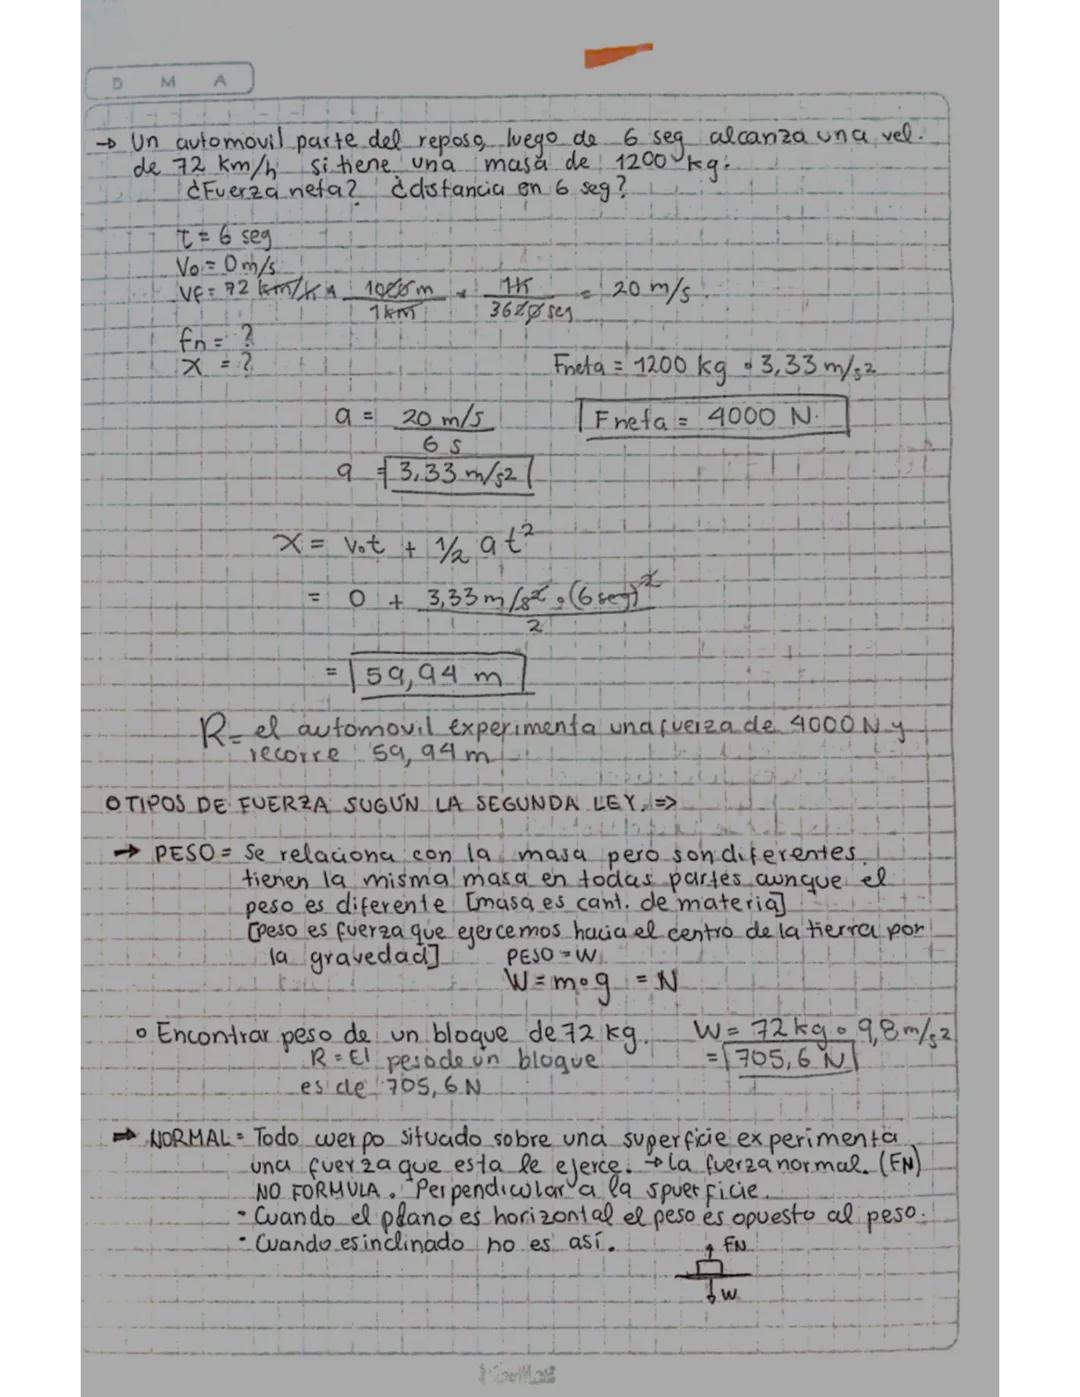 D M A
→ Un automovil parte del reposo, luego de 6 seg alcanza una vel.
de 72 km/h si tiene una masa de 1200 kg.
¿Fuerza neta? ¿distancia en 6 seg?
t = 6 seg
Vo = 0 m/s
Vf = 72 km/h * 1000 m / 1 km * 1h / 3600 seg = 20 m/s
Fn = ?
x = ?
Fneta = 1200 kg • 3,33 m/s2
a = 20 m/s / 6 s
Fneta = 4000 N.
a = 3,33 m/s2
x = Vot + 1/2 at²
= 0 + 3,33 m/s² • (6 seg)² / 2
= 59,94 m
R= el automovil experimenta una fuerza de 4000 N y
recorre 59,94 m
O TIPOS DE FUERZA SUGÚN LA SEGUNDA LEY. =>
→ PESO = Se relaciona con la masa pero son diferentes.
tienen la misma masa en todas partes aunque el
peso es diferente [masa es cant. de materia]
[peso es fuerza que ejercemos hacia el centro de la tierra por
la gravedad] PESO = W
W = m•g = N
o Encontrar peso de un bloque de 72 kg. W = 72 kg • 9,8 m/s2
R = El peso de un bloque = 705,6 N
es de 705,6 N
→ NORMAL = Todo cuerpo situado sobre una superficie experimenta
una fuerza que esta le ejerce. → La fuerza normal. (FN)
NO FORMULA. Perpendicular a la spuerficie.
- Cuando el plano es horizontal el peso es opuesto al peso.
- Cuando es inclinado no es así.
FN
W